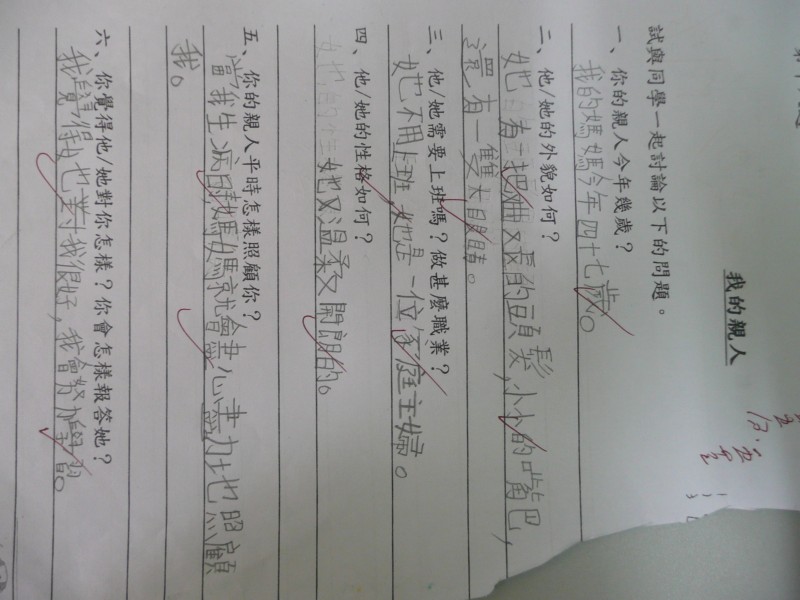 我的親人
試與同學一起討論以下的問題。
一、你的親人今年幾歲?
我的媽媽今年四十七歲。
二、他/她的外貌如何?
她有一把又長的頭髮,小小的嘴巴,
還有一雙大眼睛。
三、他/她需要上班嗎?做甚麼職業?
她不用上班,她是一位家庭主婦。
四、他/她的性格如何?
她又溫柔又開朗的。
五、你的親人平時怎樣照顧你?
當我生病時,媽媽就會盡心盡力地照顧
我。
六、你覺得他/她對你怎樣?你會怎樣報答她?
我覺得她對我很好,我會努力學習。